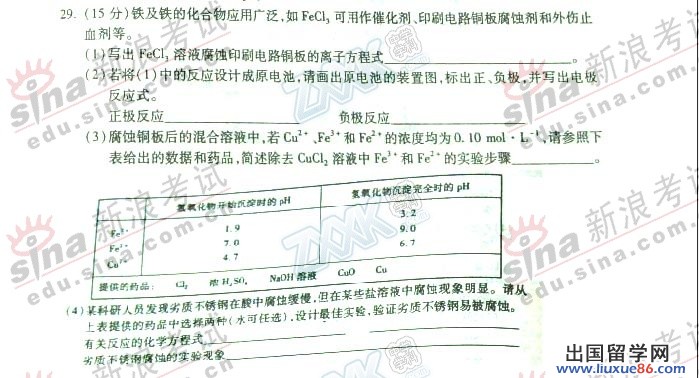 29. (15 分)铁及铁的化合物应用广泛,如 FeCl₃ 可用作催化剂、印刷电路铜板腐蚀剂和外伤止
血剂等。
(1)写出 FeCl₃ 溶液腐蚀印刷电路铜板的离子方程式____________。
(2)若将(1)中的反应设计成原电池,请画出原电池的装置图,标出正、负极,并写出电极
反应式。
正极反应____________ 负极反应____________
(3)腐蚀铜板后的混合溶液中,若 Cu²⁺、Fe³⁺ 和 Fe²⁺ 的浓度均为 0.10 mol·L⁻¹,请参照下
表给出的数据和药品,简述除去 CuCl₂ 溶液中 Fe³⁺ 和 Fe²⁺ 的实验步骤____________。
氢氧化物开始沉淀时的 pH 氢氧化物沉淀完全时的 pH
Fe³⁺ 1.9 3.2
Fe²⁺ 7.0 9.0
Cu²⁺ 4.7 6.7
提供的药品: Cl₂ 浓 H₂SO₄ NaOH 溶液 CuO Cu
(4)某科研人员发现劣质不锈钢在酸中腐蚀缓慢,但在某些盐溶液中腐蚀现象明显。请从
上表提供的药品中选择两种(水可任选),设计最佳实验,验证劣质不锈钢易被腐蚀。
有关反应的化学方程式____________
劣质不锈钢腐蚀的实验现象____________
sina 新浪考试
edu.sina.com.cn
ZXXK
出国留学网
www.liuxue86.com